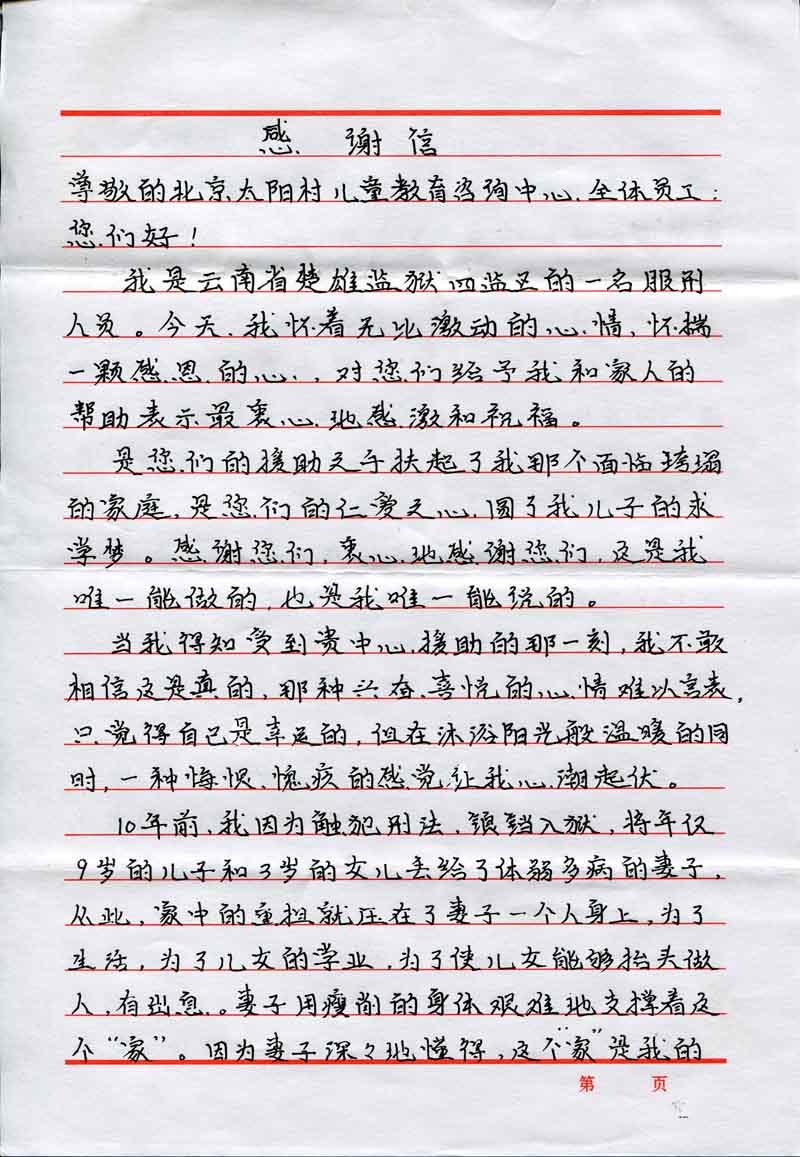 感谢信
尊敬的北京太阳村儿童教育咨询中心全体员工：
您们好！
我是云南省楚雄监狱四监区的一名服刑
人员。今天，我怀着无比激动的心情，怀揣
一颗感恩的心，对您们给予我和家人的
帮助表示最衷心地感激和祝福。
是您们的援助之手扶起了我那个面临垮塌
的家庭，是您们的仁爱之心圆了我儿子的求
学梦。感谢您们，衷心地感谢您们，这是我
唯一能做的，也是我唯一能说的。
当我得知受到贵中心援助的那一刻，我不敢
相信这是真的，那种兴奋、喜悦的心情难以言表，
只觉得自己是幸运的，但在沐浴阳光般温暖的同
时，一种悔恨、愧疚的感觉让我心潮起伏。
10年前，我因为触犯刑法，锒铛入狱，将年仅
9岁的儿子和3岁的女儿丢给了体弱多病的妻子，
从此，家中的重担就压在了妻子一个人身上，为了
生活，为了儿女的学业，为了使儿女能够抬头做
人，有出息。妻子用瘦削的身体艰难地支撑着这
个“家”。因为妻子深々地懂得，这个“家”是我的
第 页